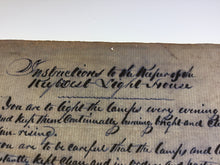 Instructions to the Keeper of the
Key West Light House
You are to light the lamps every evening
and keep them Continually burning bright and
Sun rising.
You are to be careful that the Lamps and
Clean and in